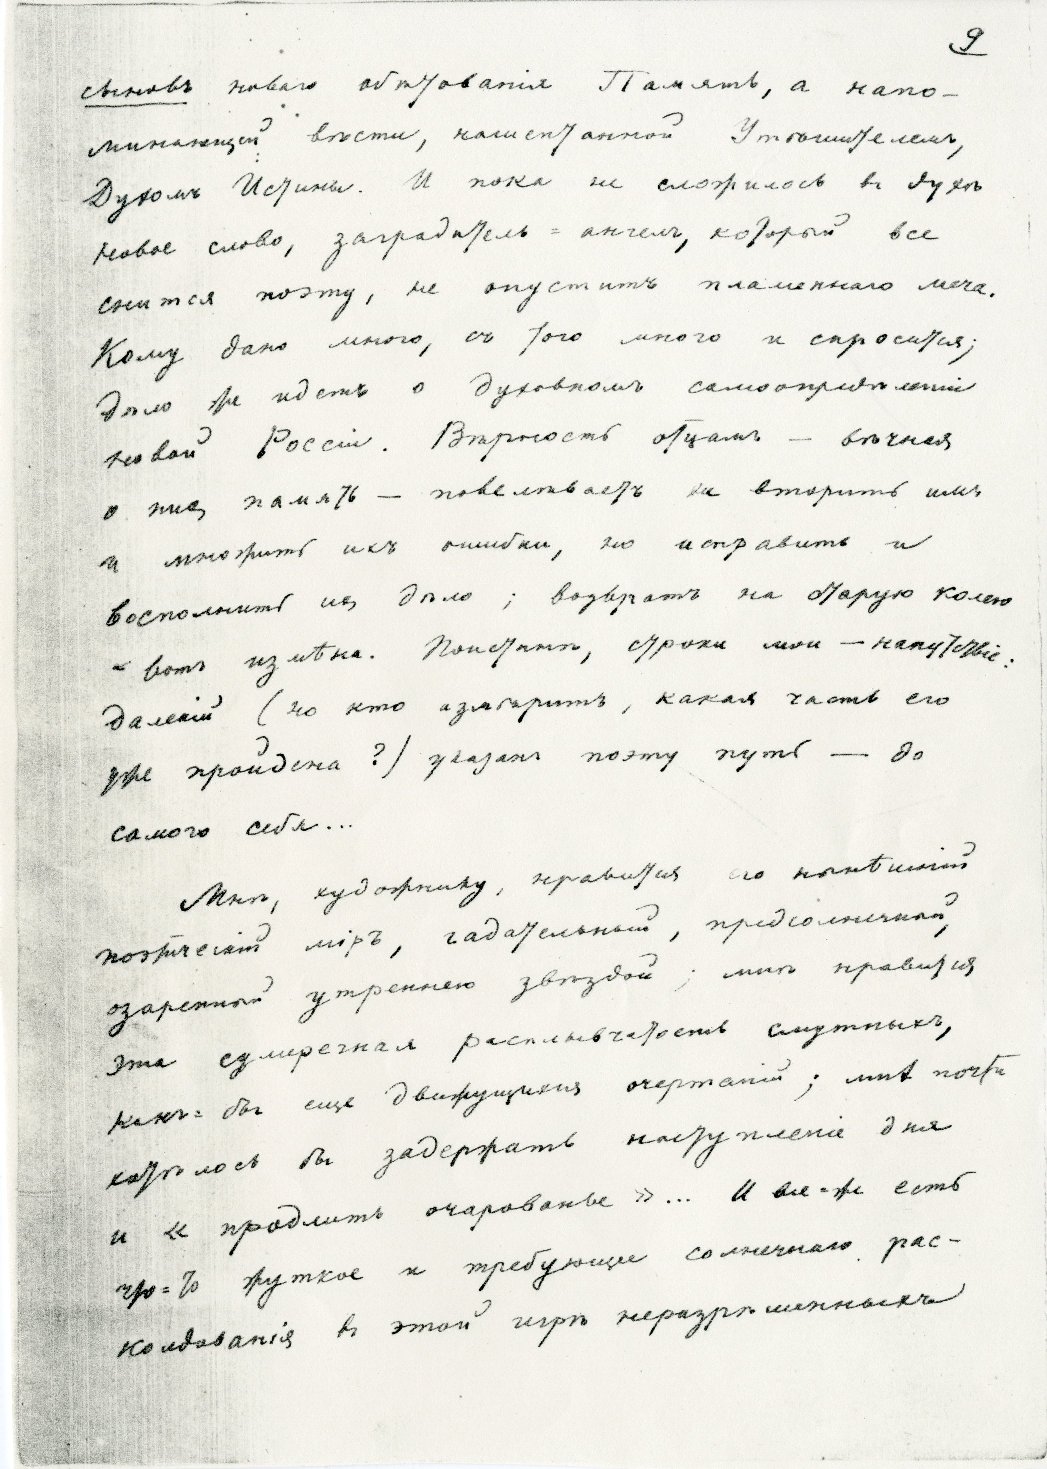 9
сыновъ новаго обѣтованія Память, а напо-
минающей вѣсти, нашептанной Утѣшителемъ,
Духомъ Истины. И пока не сложилось въ духѣ
новое слово, заградитель=ангелъ, который все
снится поэту, не опуститъ пламеннаго меча.
Кому дано много, съ того много и спросится;
дѣло же идетъ о духовномъ самоопредѣленіи
новой Россіи. Вѣрность отцамъ — вѣчная
о нихъ память — повелѣваетъ не вторить имъ
и множить ихъ ошибки, но исправить и
восполнить ихъ дѣло; возвратъ на старую колею
— вотъ измѣна. Поистинѣ, строки мои — напутствіе:
далекій (но кто измѣритъ, какая часть его
уже пройдена?) указанъ поэту путь — до
самого себя...
Мнѣ, художнику, нравится его нынѣшній
поэтическій міръ, гадательный, предсолнечный,
озаренный утреннею звѣздой; мнѣ нравится
эта сумеречная расплывчатость смутныхъ,
какъ=бы еще движущихся очертаній; мнѣ почти
хотѣлось бы задержать наступленіе дня
и «продлить очарованье»... И все=же есть
что=то жуткое и требующее солнечнаго рас-
колдованія въ этой игрѣ неразрѣшенныхъ